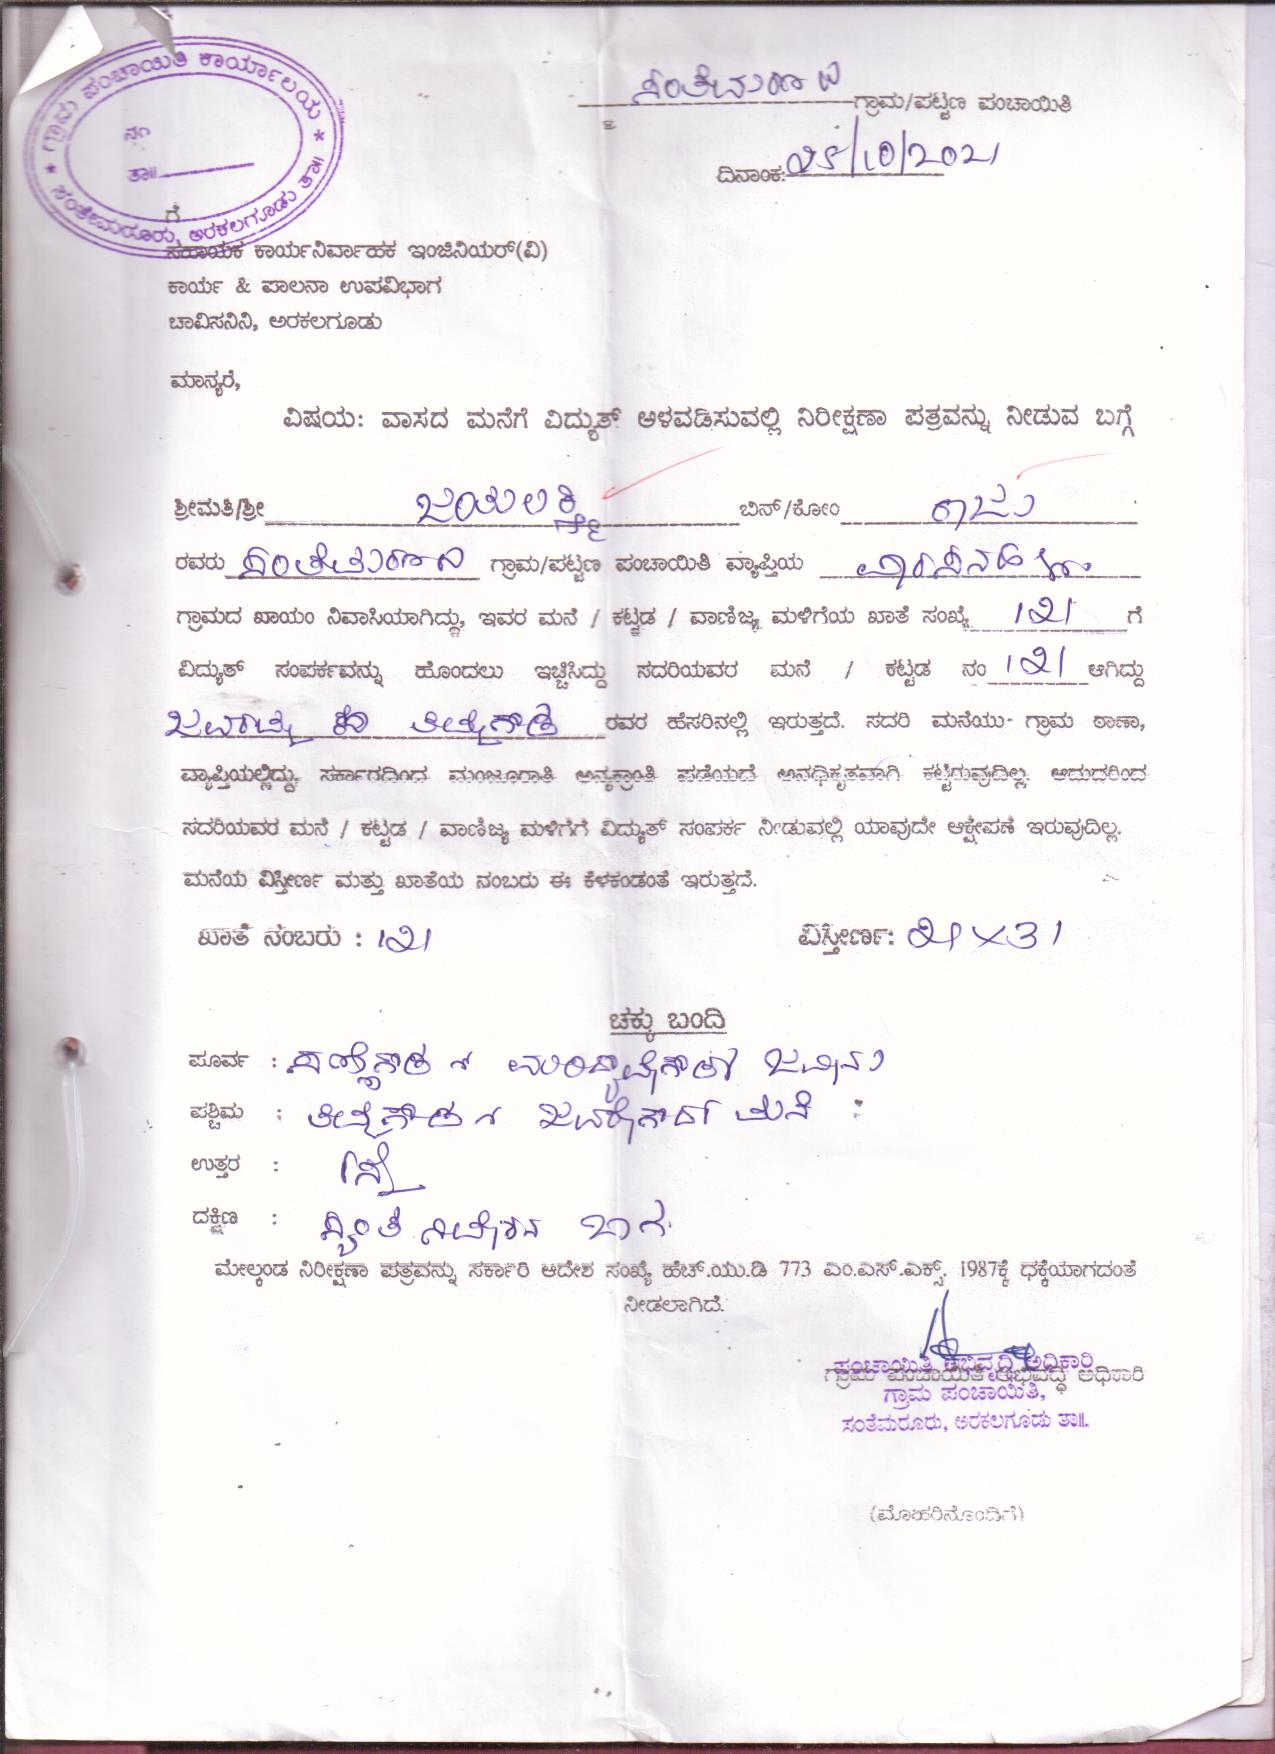 ಗ್ರಾಮ ಪಂಚಾಯಿತಿ ಕಾರ್ಯಾಲಯ
ನಂ
ತಾ॥
ಸಂತೇಮರೂರು, ಅರಕಲಗೂಡು ತಾ॥
ಗ್ರಾಮ/ಪಟ್ಟಣ ಪಂಚಾಯಿತಿ
ದಿನಾಂಕ: 25/10/2021
ಗೆ
ಸಹಾಯಕ ಕಾರ್ಯನಿರ್ವಾಹಕ ಇಂಜಿನಿಯರ್(ವಿ)
ಕಾರ್ಯ & ಪಾಲನಾ ಉಪವಿಭಾಗ
ಚಾವಿಸನಿನಿ, ಅರಕಲಗೂಡು
ಮಾನ್ಯರೆ,
ವಿಷಯ: ವಾಸದ ಮನೆಗೆ ವಿದ್ಯುತ್ ಅಳವಡಿಸುವಲ್ಲಿ ನಿರೀಕ್ಷಣಾ ಪತ್ರವನ್ನು ನೀಡುವ ಬಗ್ಗೆ
ಶ್ರೀಮತಿ/ಶ್ರೀ ಜಯಲಕ್ಷ್ಮೀ ಬಿನ್/ಕೋಂ ರಾಜು
ರವರು ಗ್ರಾಮ/ಪಟ್ಟಣ ಪಂಚಾಯಿತಿ ವ್ಯಾಪ್ತಿಯ
ಗ್ರಾಮದ ಖಾಯಂ ನಿವಾಸಿಯಾಗಿದ್ದು, ಇವರ ಮನೆ / ಕಟ್ಟಡ / ವಾಣಿಜ್ಯ ಮಳಿಗೆಯ ಖಾತೆ ಸಂಖ್ಯೆ 121 ಗೆ
ವಿದ್ಯುತ್ ಸಂಪರ್ಕವನ್ನು ಹೊಂದಲು ಇಚ್ಚಿಸಿದ್ದು ಸದರಿಯವರ ಮನೆ / ಕಟ್ಟಡ ನಂ 121 ಆಗಿದ್ದು
ರವರ ಹೆಸರಿನಲ್ಲಿ ಇರುತ್ತದೆ. ಸದರಿ ಮನೆಯು- ಗ್ರಾಮ ಠಾಣಾ,
ವ್ಯಾಪ್ತಿಯಲ್ಲಿದ್ದು, ಸರ್ಕಾರದಿಂದ ಮಂಜೂರಾತಿ ಅನ್ಯಕ್ರಾಂತಿ ಪಡೆಯದೆ ಅನಧಿಕೃತವಾಗಿ ಕಟ್ಟಿರುವುದಿಲ್ಲ. ಆದುದರಿಂದ
ಸದರಿಯವರ ಮನೆ / ಕಟ್ಟಡ / ವಾಣಿಜ್ಯ ಮಳಿಗೆಗೆ ವಿದ್ಯುತ್ ಸಂಪರ್ಕ ನೀಡುವಲ್ಲಿ ಯಾವುದೇ ಆಕ್ಷೇಪಣೆ ಇರುವುದಿಲ್ಲ.
ಮನೆಯ ವಿಸ್ತೀರ್ಣ ಮತ್ತು ಖಾತೆಯ ನಂಬರು ಈ ಕೆಳಕಂಡಂತೆ ಇರುತ್ತದೆ.
ಖಾತೆ ನಂಬರು : 121 ವಿಸ್ತೀರ್ಣ: 21 X 31
ಚಕ್ಕು ಬಂದಿ
ಪೂರ್ವ : ಜಮೀನು
ಪಶ್ಚಿಮ : ಮನೆ
ಉತ್ತರ : ರಸ್ತೆ
ದಕ್ಷಿಣ :
ಮೇಲ್ಕಂಡ ನಿರೀಕ್ಷಣಾ ಪತ್ರವನ್ನು ಸರ್ಕಾರಿ ಆದೇಶ ಸಂಖ್ಯೆ ಹೆಚ್.ಯು.ಡಿ 773 ಎಂ.ಎಸ್.ಎಕ್ಸ್. 1987ಕ್ಕೆ ಧಕ್ಕೆಯಾಗದಂತೆ
ನೀಡಲಾಗಿದೆ.
ಪಂಚಾಯಿತಿ ಅಭಿವೃದ್ಧಿ ಅಧಿಕಾರಿ
ಗ್ರಾಮ ಪಂಚಾಯಿತಿ ಅಭಿವೃದ್ಧಿ ಅಧಿಕಾರಿ
ಗ್ರಾಮ ಪಂಚಾಯಿತಿ,
ಸಂತೆಮರೂರು, ಅರಕಲಗೂಡು ತಾ॥.
(ಮೊಹರಿನೊಂದಿಗೆ)